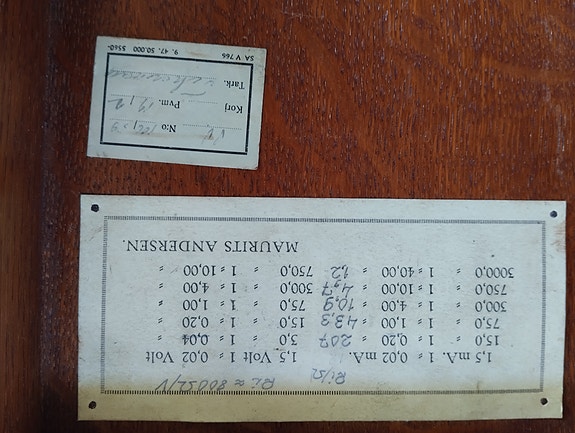 Ri/Ω Ri ≈ 800Ω/V
1,5 mA. 1 = 0,02 mA. 1,5 Volt 1 = 0,02 Volt
15,0 " 1 = 0,20 " 207 3,0 " 1 = 0,04 "
75,0 " 1 = 1,00 " 43,3 15,0 " 1 = 0,20 "
300,0 " 1 = 4,00 " 10,9 75,0 " 1 = 1,00 "
750,0 " 1 = 10,00 " 4,7 300,0 " 1 = 4,00 "
3000,0 " 1 = 40,00 " 1,2 750,0 " 1 = 10,00 "
MAURITS ANDERSEN.
N:o
Korj Pvm.
Tark.
SA V 766 9. 47. 50.000 5560-